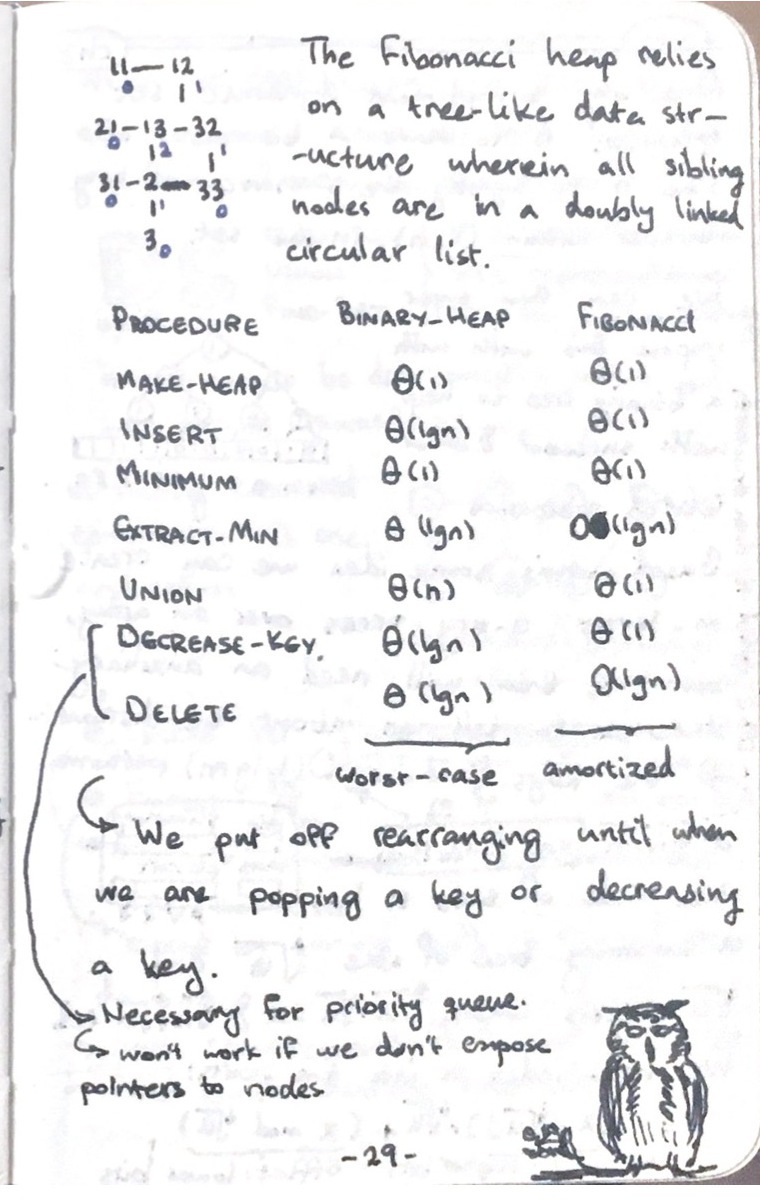 11 — 12
0 1
21 - 13 - 32
0 2 1
31 - 2 — 33
0 1 0
3 0
The Fibonacci heap relies
on a tree-like data str-
-ucture wherein all sibling
nodes are in a doubly linked
circular list.
PROCEDURE BINARY-HEAP FIBONACCI
MAKE-HEAP Θ(1) Θ(1)
INSERT Θ(lgn) Θ(1)
MINIMUM Θ(1) Θ(1)
EXTRACT-MIN Θ(lgn) O(lgn)
UNION Θ(n) Θ(1)
DECREASE-KEY. Θ(lgn) Θ(1)
DELETE Θ(lgn) O(lgn)
worst-case amortized
We put off rearranging until when
we are popping a key or decreasing
a key.
Necessary for priority queue.
won't work if we don't expose
pointers to nodes
-29-